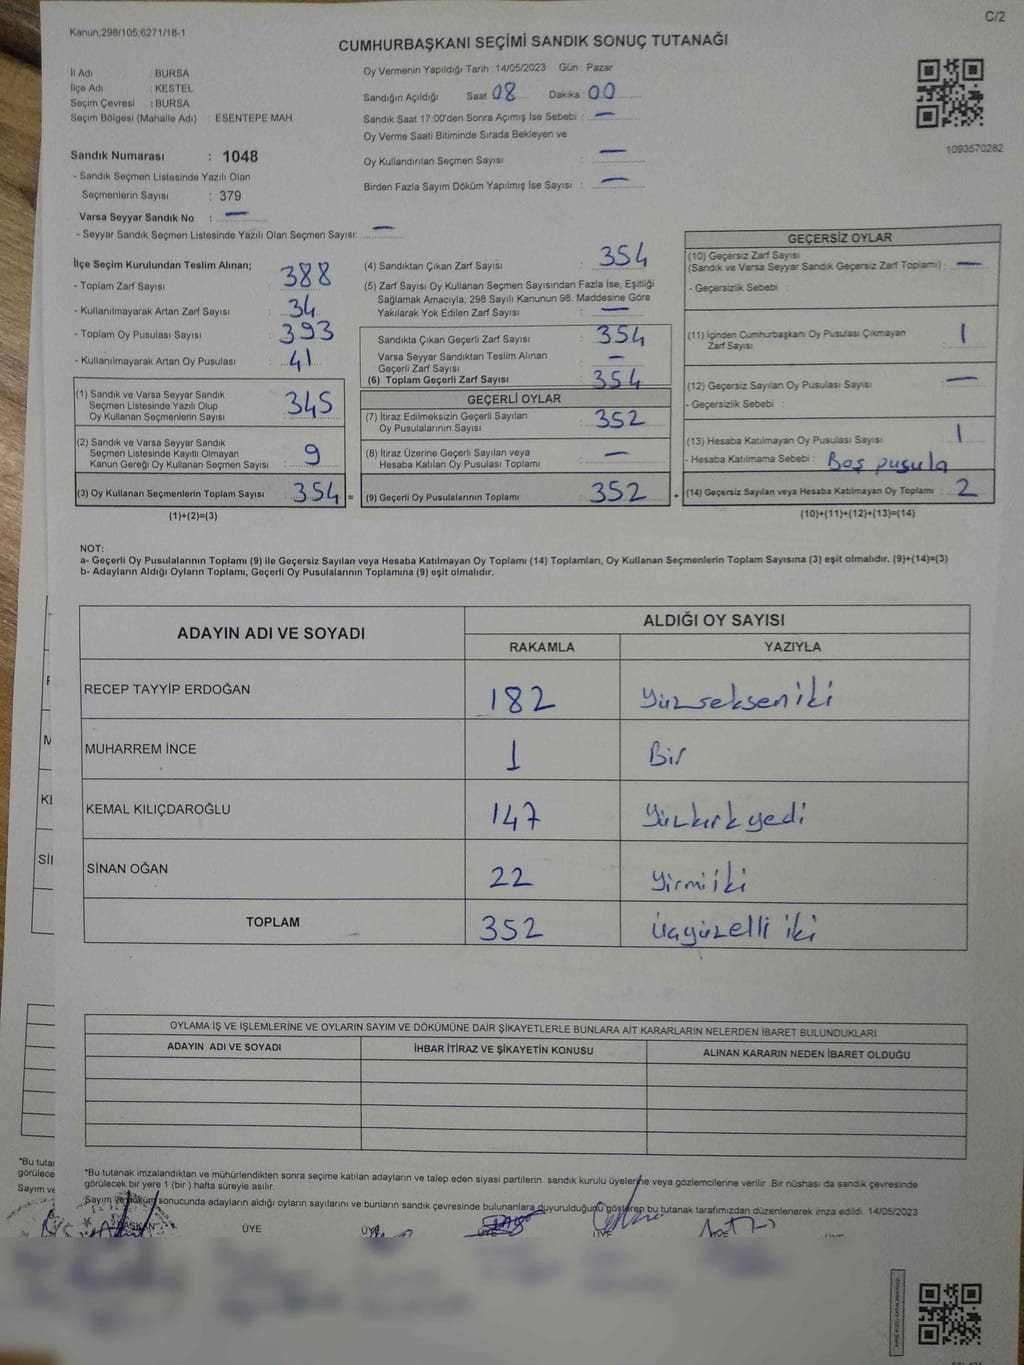 C/2
Kanun;298/105;6271/18-1
CUMHURBAŞKANI SEÇİMİ SANDIK SONUÇ TUTANAĞI
İl Adı : BURSA
İlçe Adı : KESTEL
Seçim Çevresi : BURSA
Seçim Bölgesi (Mahalle Adı) : ESENTEPE MAH
Oy Vermenin Yapıldığı Tarih : 14/05/2023 Gün : Pazar
Sandığın Açıldığı Saat 08 Dakika : 00
Sandık Saat 17:00'den Sonra Açımış İse Sebebi : —
Oy Verme Saati Bitiminde Sırada Bekleyen ve
Oy Kullandırılan Seçmen Sayısı : —
Birden Fazla Sayım Döküm Yapılmış İse Sayısı : —
1093570282
Sandık Numarası : 1048
- Sandık Seçmen Listesinde Yazılı Olan
Seçmenlerin Sayısı : 379
Varsa Seyyar Sandık No : —
- Seyyar Sandık Seçmen Listesinde Yazılı Olan Seçmen Sayısı: —
İlçe Seçim Kurulundan Teslim Alınan;
- Toplam Zarf Sayısı : 388
- Kullanılmayarak Artan Zarf Sayısı : 34
- Toplam Oy Pusulası Sayısı : 393
- Kullanılmayarak Artan Oy Pusulası : 41
(1) Sandık ve Varsa Seyyar Sandık
Seçmen Listesinde Yazılı Olup
Oy Kullanan Seçmenlerin Sayısı : 345
(2) Sandık ve Varsa Seyyar Sandık
Seçmen Listesinde Kayıtlı Olmayan
Kanun Gereği Oy Kullanan Seçmen Sayısı : 9
(3) Oy Kullanan Seçmenlerin Toplam Sayısı : 354 =
(1)+(2)=(3)
(4) Sandıktan Çıkan Zarf Sayısı : 354
(5) Zarf Sayısı Oy Kullanan Seçmen Sayısından Fazla İse, Eşitliği
Sağlamak Amacıyla; 298 Sayılı Kanunun 98. Maddesine Göre
Yakılarak Yok Edilen Zarf Sayısı : —
Sandıkta Çıkan Geçerli Zarf Sayısı : 354
Varsa Seyyar Sandıktan Teslim Alınan
Geçerli Zarf Sayısı : —
(6) Toplam Geçerli Zarf Sayısı : 354
GEÇERLİ OYLAR
(7) İtiraz Edilmeksizin Geçerli Sayılan
Oy Pusulalarının Sayısı : 352
(8) İtiraz Üzerine Geçerli Sayılan veya
Hesaba Katılan Oy Pusulası Toplamı : —
(9) Geçerli Oy Pusulalarının Toplamı : 352 +
GEÇERSİZ OYLAR
(10) Geçersiz Zarf Sayısı
(Sandık ve Varsa Seyyar Sandık Geçersiz Zarf Toplamı) : —
- Geçersizlik Sebebi :
(11) İçinden Cumhurbaşkanı Oy Pusulası Çıkmayan
Zarf Sayısı : 1
(12) Geçersiz Sayılan Oy Pusulası Sayısı : —
- Geçersizlik Sebebi :
(13) Hesaba Katılmayan Oy Pusulası Sayısı : 1
- Hesaba Katılmama Sebebi : Boş pusula
(14) Geçersiz Sayılan veya Hesaba Katılmayan Oy Toplamı : 2
(10)+(11)+(12)+(13)=(14)
NOT:
a- Geçerli Oy Pusulalarının Toplamı (9) ile Geçersiz Sayılan veya Hesaba Katılmayan Oy Toplamı (14) Toplamları, Oy Kullanan Seçmenlerin Toplam Sayısına (3) eşit olmalıdır. (9)+(14)=(3)
b- Adayların Aldığı Oyların Toplamı, Geçerli Oy Pusulalarının Toplamına (9) eşit olmalıdır.
ADAYIN ADI VE SOYADI ALDIĞI OY SAYISI
RAKAMLA YAZIYLA
RECEP TAYYİP ERDOĞAN 182 Yüzsekseniki
MUHARREM İNCE 1 Bir
KEMAL KILIÇDAROĞLU 147 Yüzkırkyedi
SİNAN OĞAN 22 Yirmiiki
TOPLAM 352 Üçyüzelli iki
OYLAMA İŞ VE İŞLEMLERİNE VE OYLARIN SAYIM VE DÖKÜMÜNE DAİR ŞİKAYETLERLE BUNLARA AİT KARARLARIN NELERDEN İBARET BULUNDUKLARI
ADAYIN ADI VE SOYADI İHBAR İTİRAZ VE ŞİKAYETİN KONUSU ALINAN KARARIN NEDEN İBARET OLDUĞU
*Bu tutanak imzalandıktan ve mühürlendikten sonra seçime katılan adayların ve talep eden siyasi partilerin sandık kurulu üyelerine veya gözlemcilerine verilir .Bir nüshası da sandık çevresinde
görülecek bir yere 1 (bir ) hafta süreyle asılır.
Sayım ve döküm sonucunda adayların aldığı oyların sayılarını ve bunların sandık çevresinde bulunanlara duyurulduğunu gösteren bu tutanak tarafımızdan düzenlenerek imza edildi. 14/05/2023
BAŞKAN ÜYE ÜYE ÜYE ÜYE ÜYE